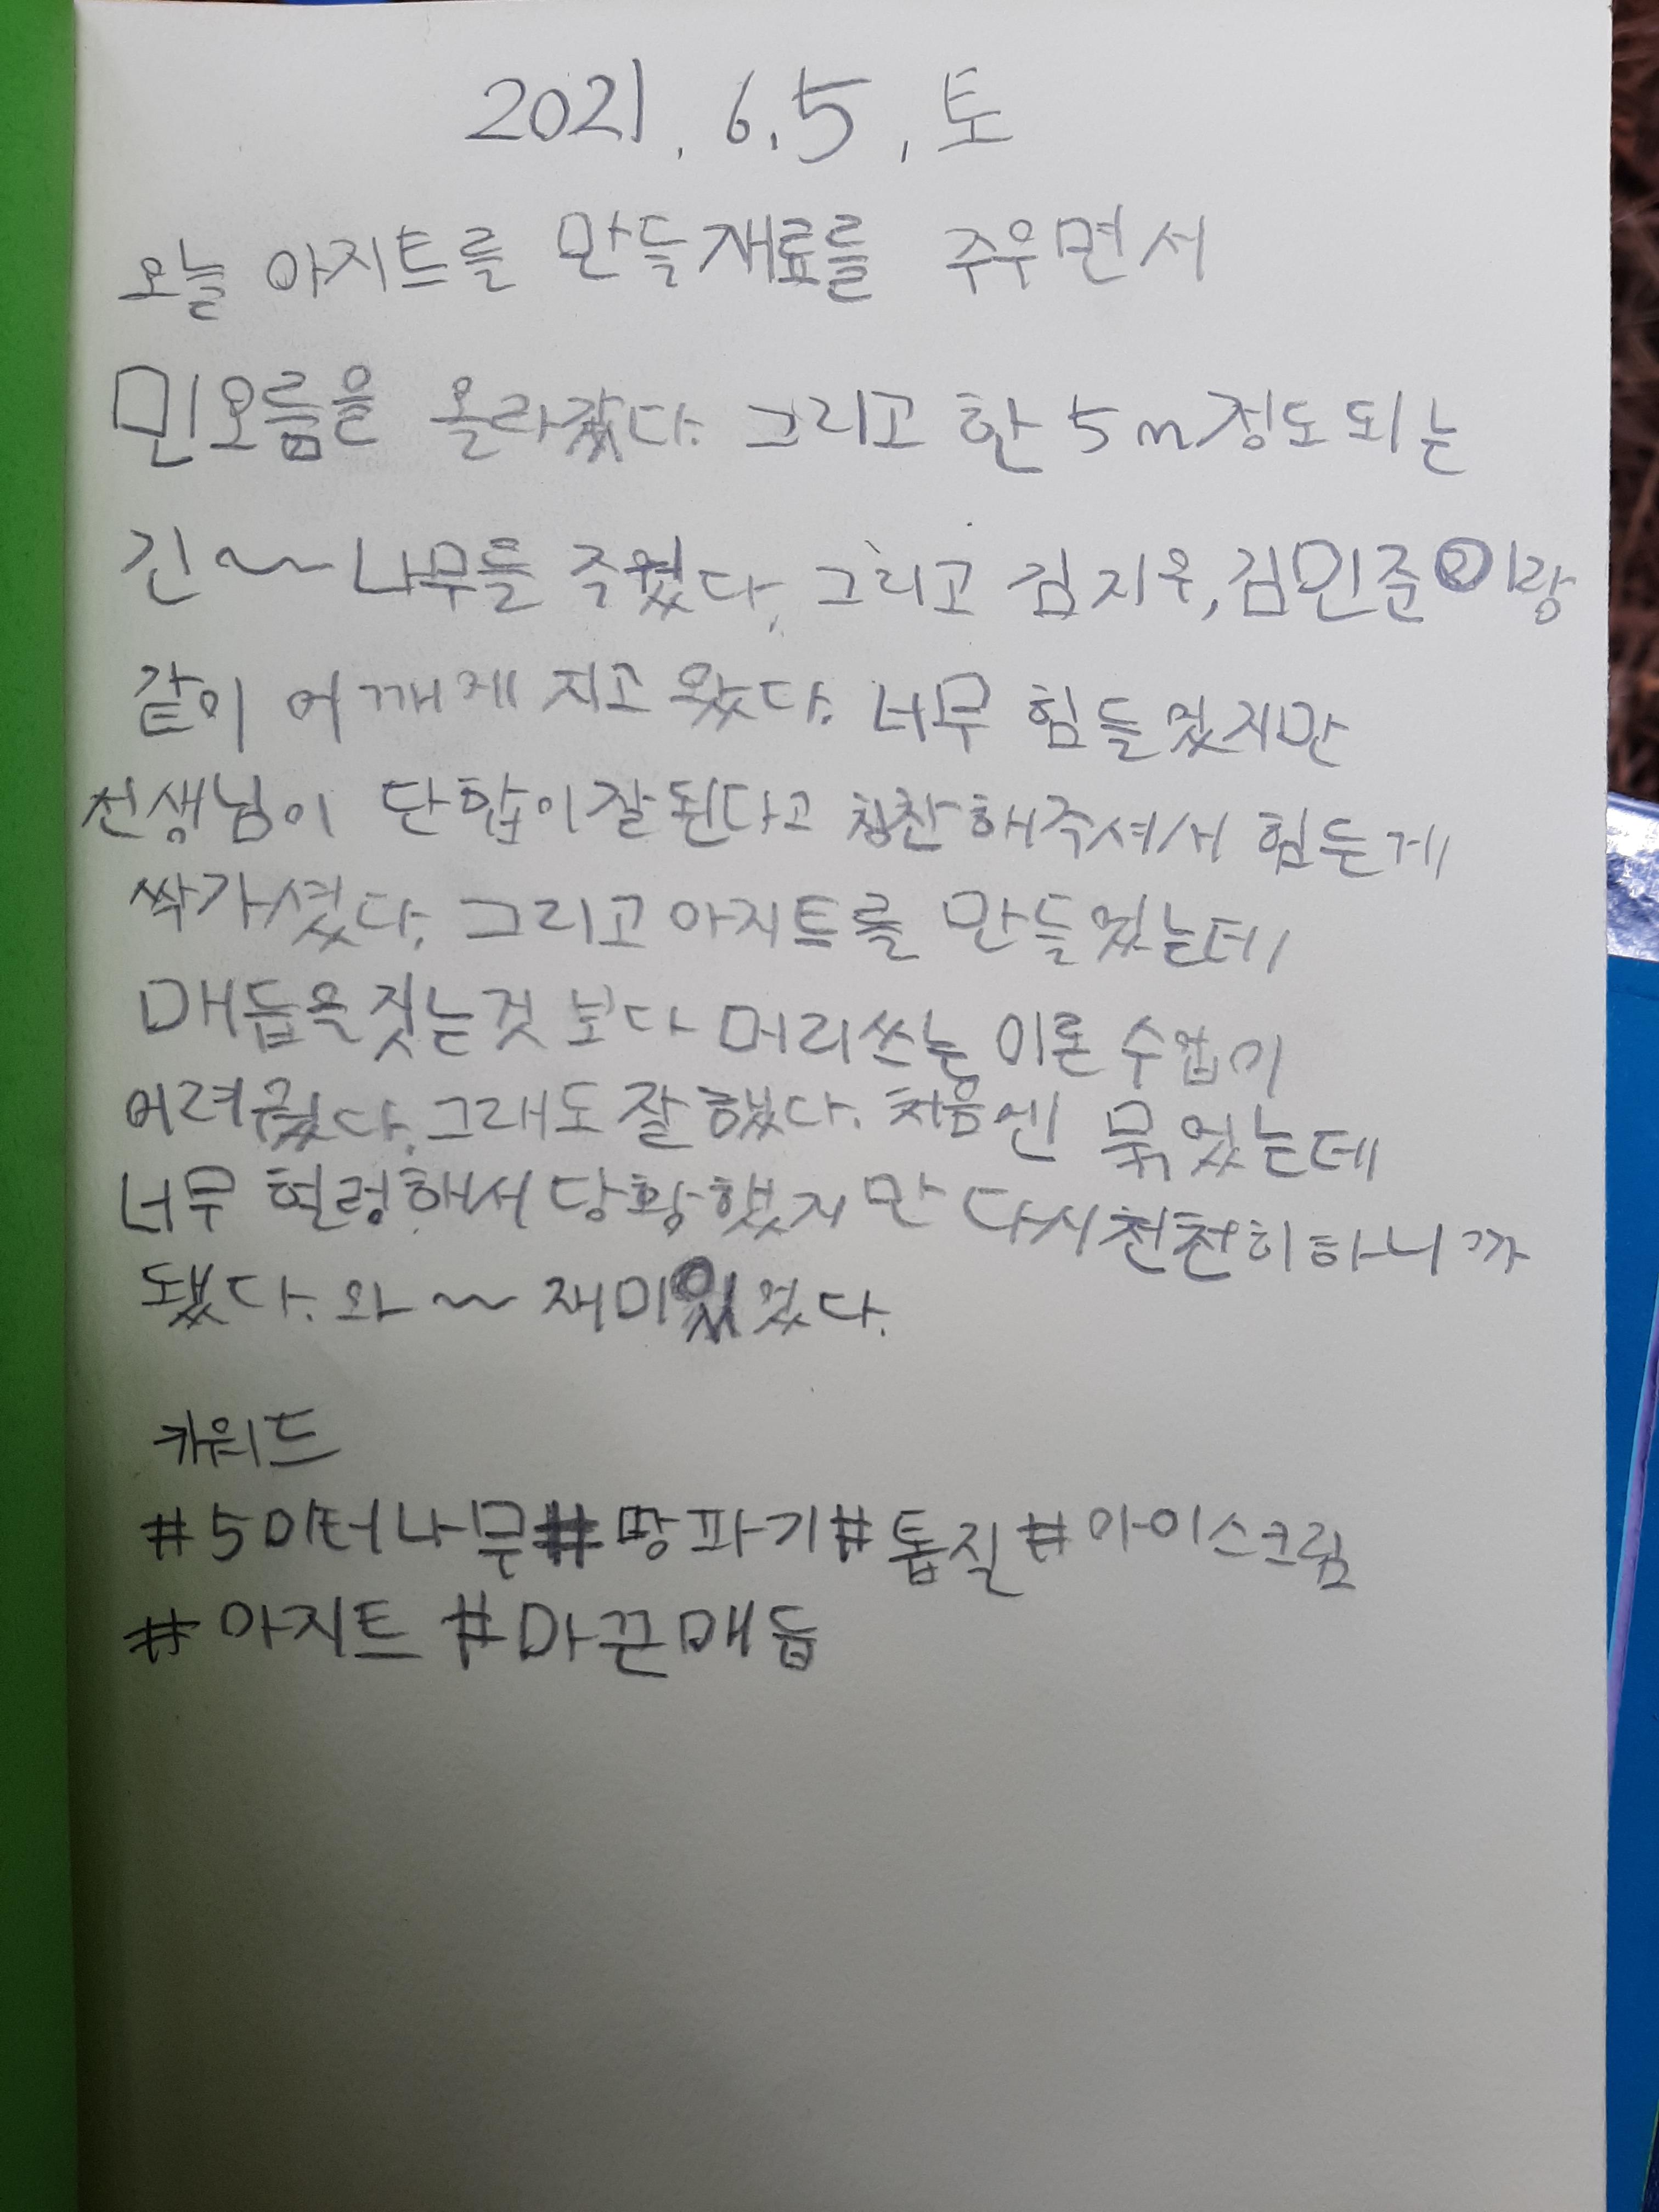 2021. 6.5, 토
오늘 아지트를 만들재료를 주우면서
민오름을 올라갔다. 그리고 한 5m정도되는
긴~ 나무를 주웠다. 그리고 김지우, 김민준이랑
같이 어깨게 지고 왔다. 너무 힘들었지만
선생님이 단합이잘된다고 칭찬해주셔서 힘든게
싹가셨다. 그리고아지트를 만들었는데
매듭을짓는것 보다 머리쓰는 이론수업이
어려웠다. 그래도 잘했다. 처음엔 묶었는데
너무 헐렁해서 당황했지만 다시천천히하니까
됐다. 와~ 재미있었다.
키워드
#5미터나무#땅파기#톱질#아이스크림
#아지트 #마끈매듭